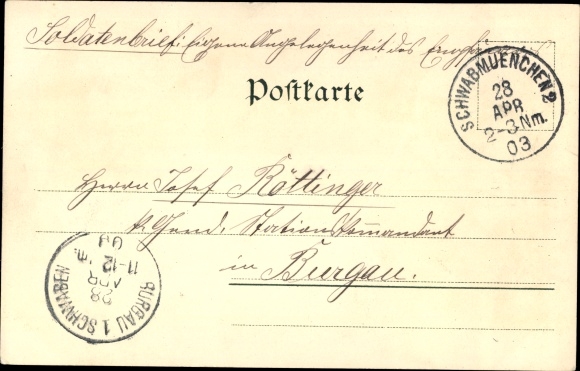 Soldatenbrief: Eigene Angelegenheit des Empfängers
Postkarte
SCHWABMUENCHEN 2
28
APR
2-3 Nm.
03
Herrn Josef Röttinger
k. Gend. Stationskommandant
in Burgau.
BURGAU 1 SCHWABEN
28
APR
11-12
03